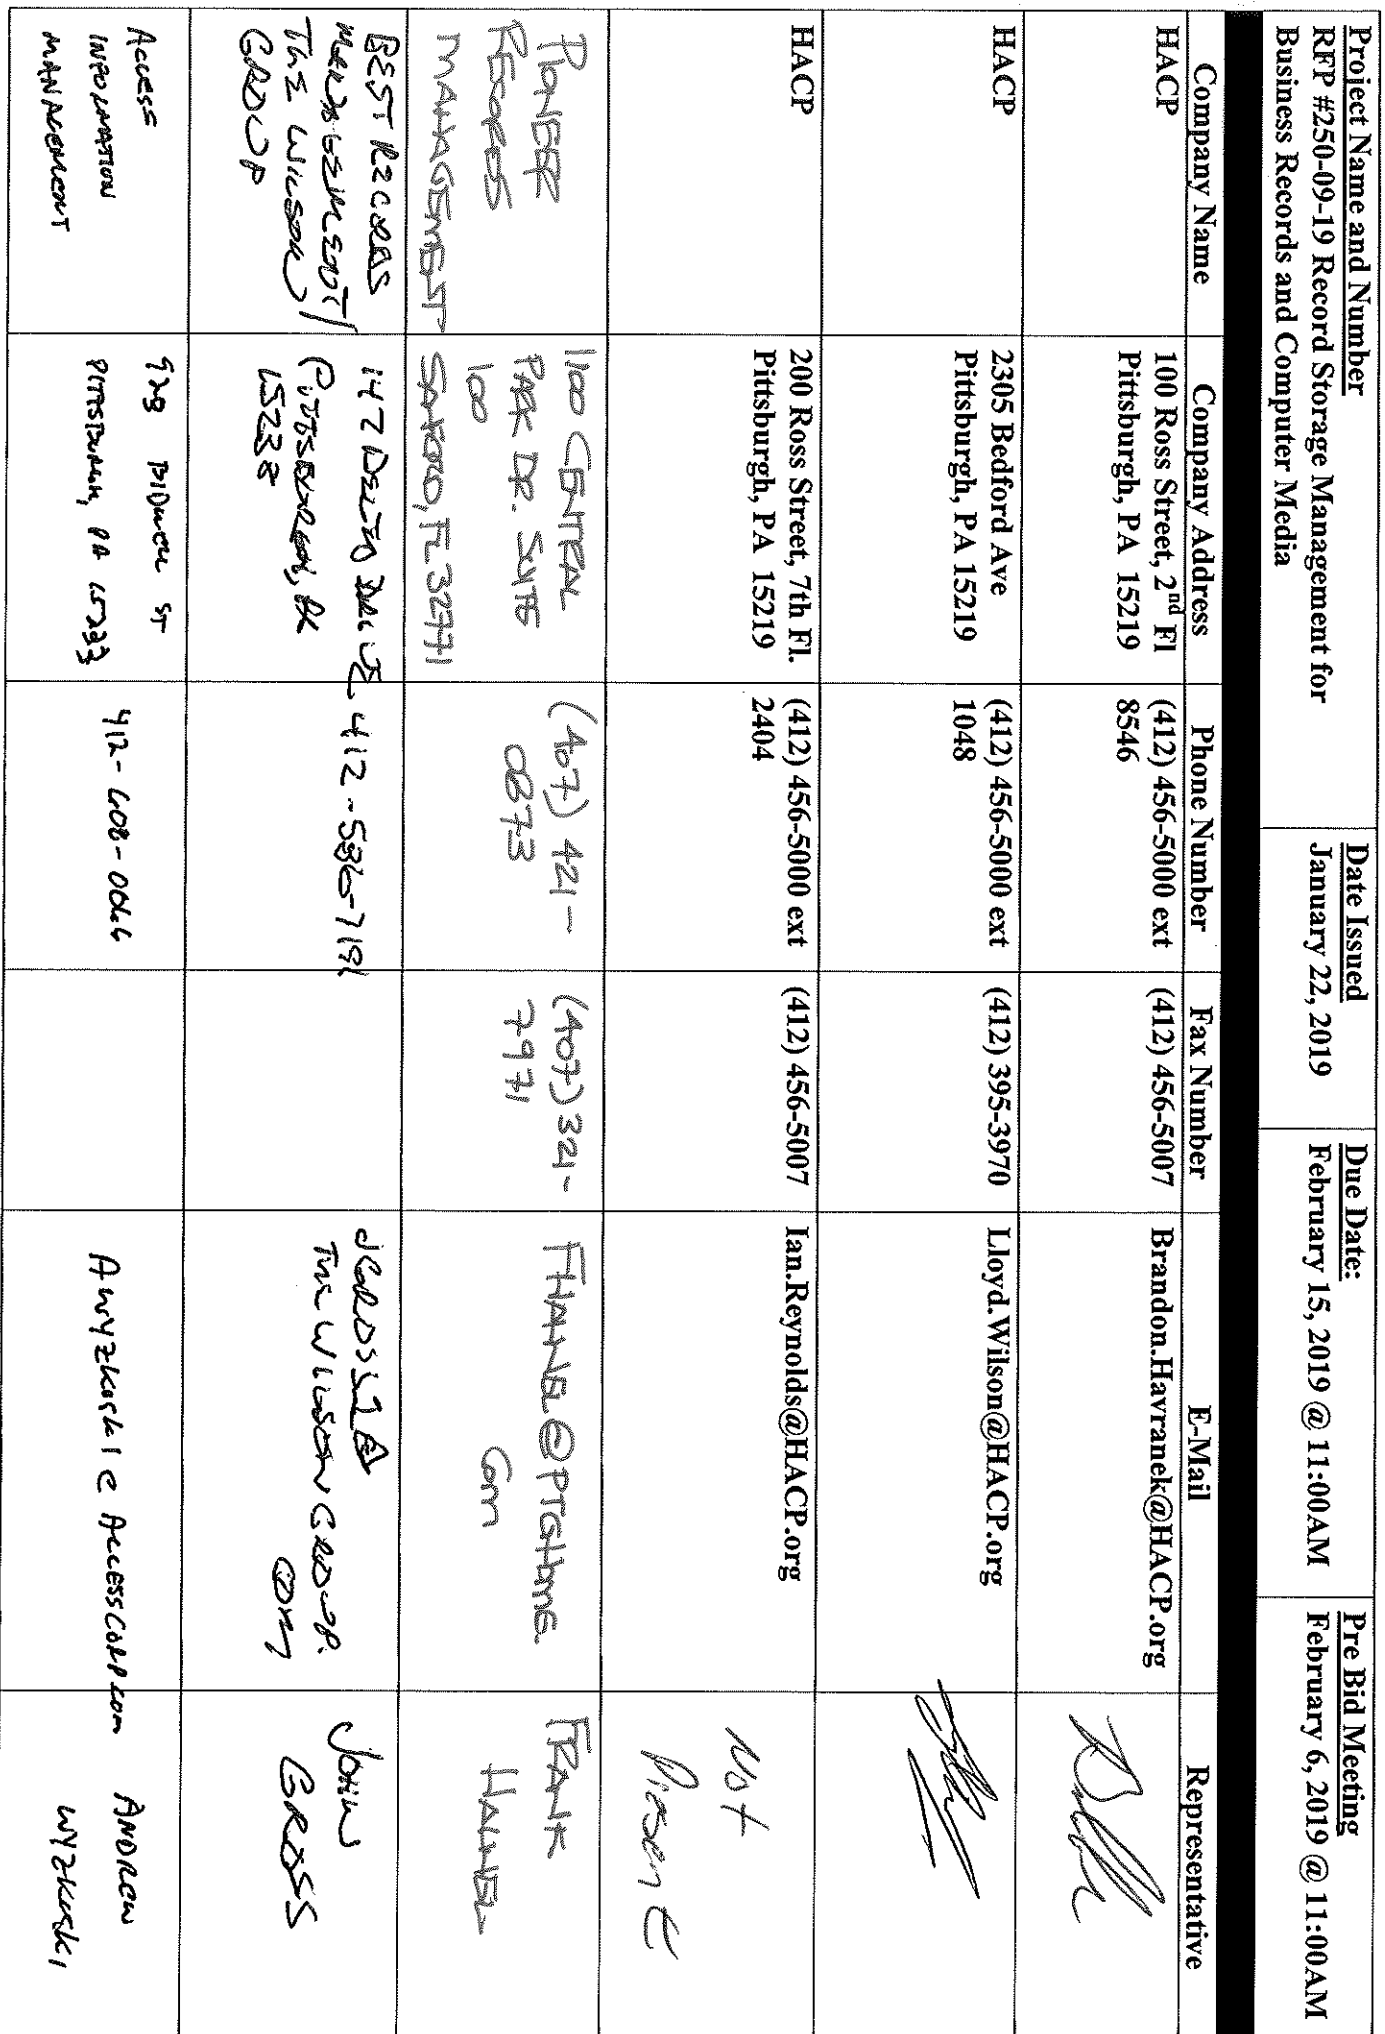 Project Name and Number
RFP #250-09-19 Record Storage Management for
Business Records and Computer Media
Date Issued
January 22, 2019
Due Date:
February 15, 2019 @ 11:00AM
Pre Bid Meeting
February 6, 2019 @ 11:00AM
Company Name
Company Address
Phone Number
Fax Number
E-Mail
Representative
HACP
100 Ross Street, 2nd Fl
Pittsburgh, PA 15219
(412) 456-5000 ext
8546
(412) 456-5007
Brandon.Havranek@HACP.org
HACP
2305 Bedford Ave
Pittsburgh, PA 15219
(412) 456-5000 ext
1048
(412) 395-3970
Lloyd.Wilson@HACP.org
HACP
200 Ross Street, 7th Fl.
Pittsburgh, PA 15219
(412) 456-5000 ext
2404
(412) 456-5007
Ian.Reynolds@HACP.org
Not
Present
PIONEER
RECORDS
MANAGEMENT
1100 CENTRAL
PARK DR. SUITE
100
SANFORD, FL 32771
(407) 421-
0873
(407) 321-
7971
FHANNEL@PTGHOME.
Com
FRANK
HANNEL
BEST RECORDS
MANAGEMENT/
THE WILSON
GROUP
147 DELTA DRIVE
PITTSBURGH, PA
15238
412-586-7191
JGROSS@
THE WILSON GROUP.
COM
JOHN
GROSS
ACCESS
INFORMATION
MANAGEMENT
928 BIDWELL ST
PITTSBURGH, PA 15233
412-608-0066
AWyzkoski@AccessCorp.com
ANDREW
WYZKOSKI